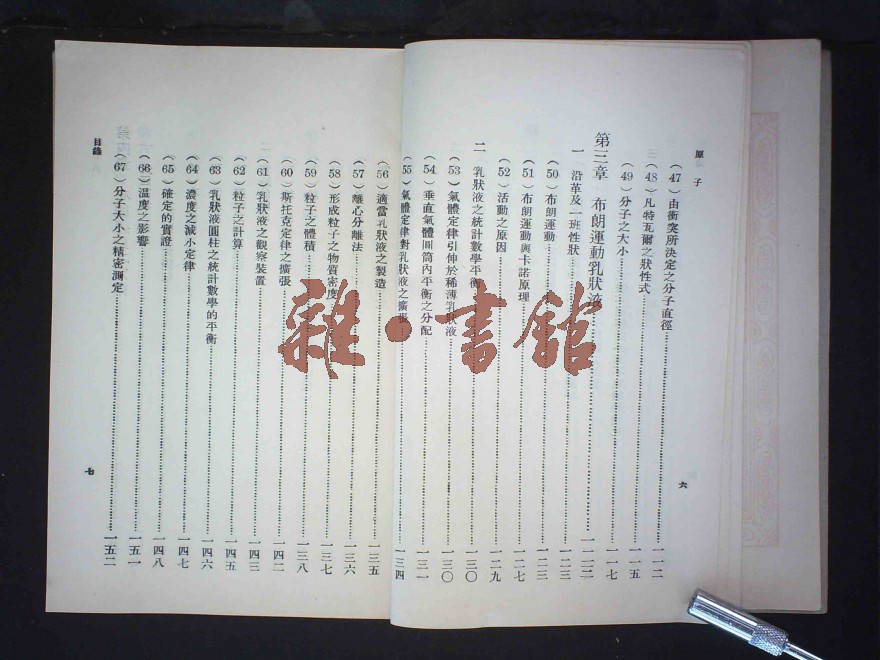 原子
(47)由衝突所決定之分子直徑……一一二
(48)凡特瓦爾之狀性式……一一五
(49)分子之大小……一一七
第三章 布朗運動乳狀液……一二三
一 沿革及一班性狀……一二三
(50)布朗運動……一二三
(51)布朗運動與卡諾原理……一二七
(52)活動之原因……一二九
二 乳狀液之統計數學平衡……一三〇
(53)氣體定律引伸於稀薄乳狀液……一三〇
(54)垂直氣體圓筒內平衡之分配……一三一
(55)氣體定律對乳狀液之擴張……一三四
六
(56)適當乳狀液之製造……一三五
(57)離心分離法……一三六
(58)形成粒子之物質密度……一三七
(59)粒子之體積……一三八
(60)斯托克定律之擴張……一四二
(61)乳狀液之觀察裝置……一四三
(62)粒子之計算……一四五
(63)乳狀液圓柱之統計數學的平衡……一四六
(64)濃度之減小定律……一四七
(65)確定的實證……一四八
(66)溫度之影響……一五一
(67)分子大小之精密測定……一五二
目錄
七
雜·書館